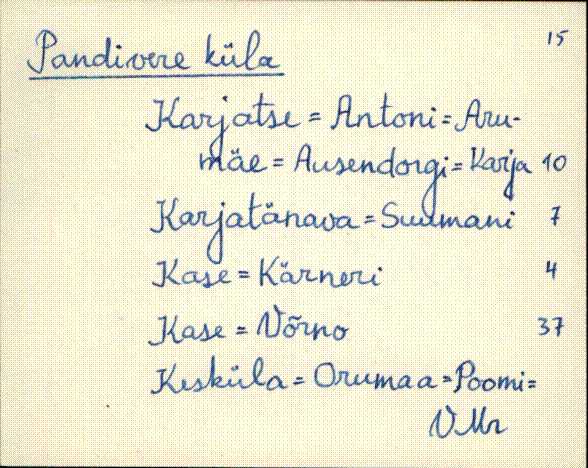 Pandivere küla 15
Karjatse = Antoni = Aru-
mäe = Ausendorgi = Karja 10
Karjatänava = Suumani 7
Kase = Kärneri 4
Kase = Võrno 37
Kesküla = Orumaa = Poomi =
VMr